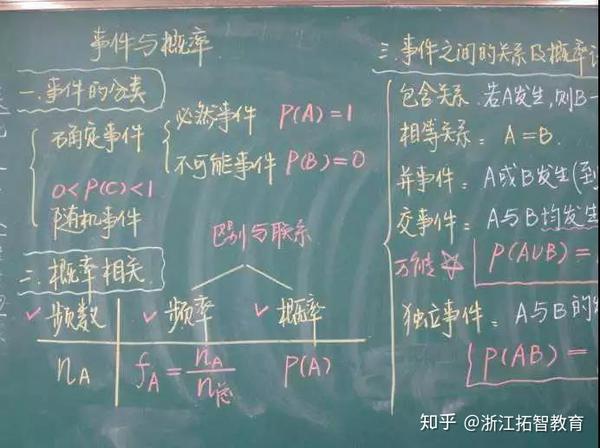 事件与概率
一.事件的分类
确定事件
必然事件 P(A)=1
不可能事件 P(B)=0
0<P(C)<1
随机事件
二.概率相关
区别与联系
✓频数 ✓频率 ✓概率
nA fA=nA/n总 P(A)
三.事件之间的关系及概率
包含关系.若A发生,则B一
相等关系: A=B.
并事件: A或B发生(到
交事件: A与B均发生
万能☆ P(AUB)=
独立事件: A与B的
P(AB)=
知乎 @浙江拓智教育